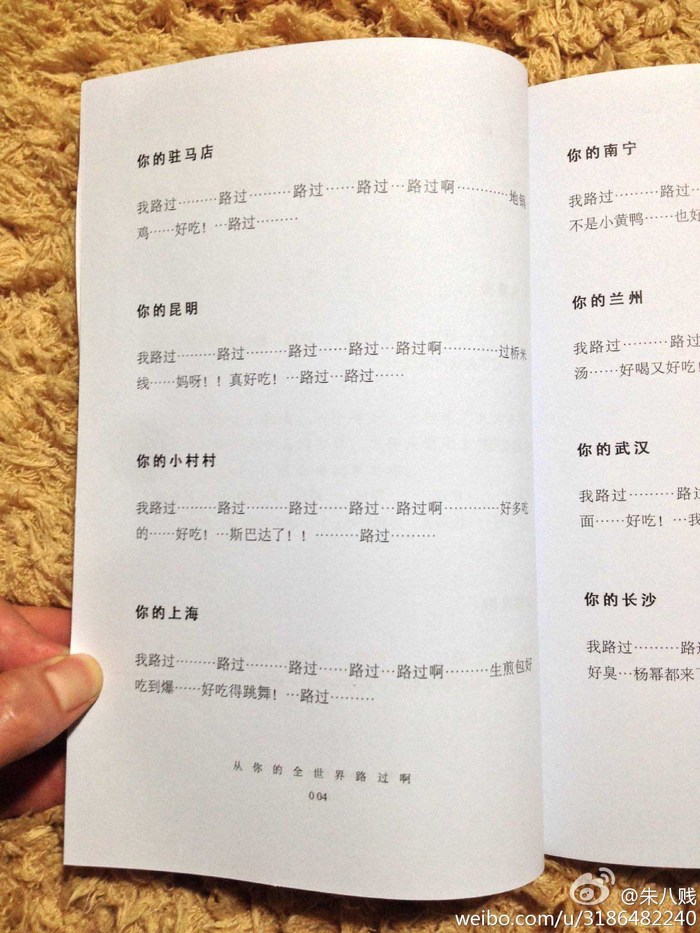 你的驻马店
我路过………路过………路过……路过…路过啊…………地锅
鸡……好吃！…路过………
你的昆明
我路过………路过………路过……路过…路过啊………过桥米
线……妈呀！！真好吃！…路过…路过……
你的小村村
我路过………路过………路过……路过…路过啊…………好多吃
的……好吃！…斯巴达了！！………路过………
你的上海
我路过………路过………路过……路过…路过啊………生煎包好
吃到爆……好吃得跳舞！…路过………
从你的全世界路过啊
004
你的南宁
我路过………路过…
不是小黄鸭……也好
你的兰州
我路过………路过
汤……好喝又好吃！
你的武汉
我路过………路过
面……好吃！…我
你的长沙
我路过………路过
好臭…杨幂都来了
@朱八贱
weibo.com/u/3186482240